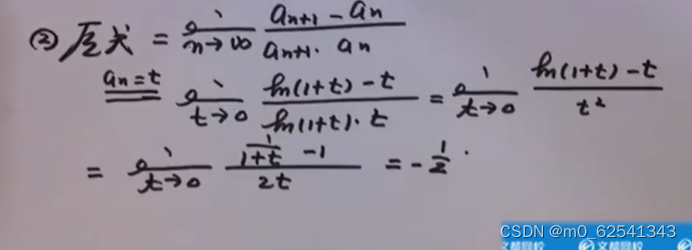 ② 原式 = lim n→∞ (aₙ₊₁ - aₙ)/(aₙ₊₁ · aₙ)
aₙ=t lim t→0 (ln(1+t) - t)/(ln(1+t)·t) = lim t→0 (ln(1+t) - t)/t²
= lim t→0 (1/(1+t) - 1)/2t = -1/2 ·
CSDN @m0_62541343